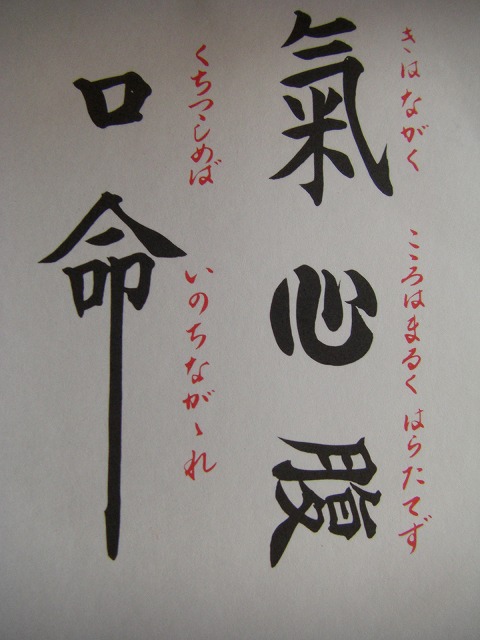 きはながく こころはまるく はらたてず
氣心腹
くちつゝしめば いのちながゝれ
口命